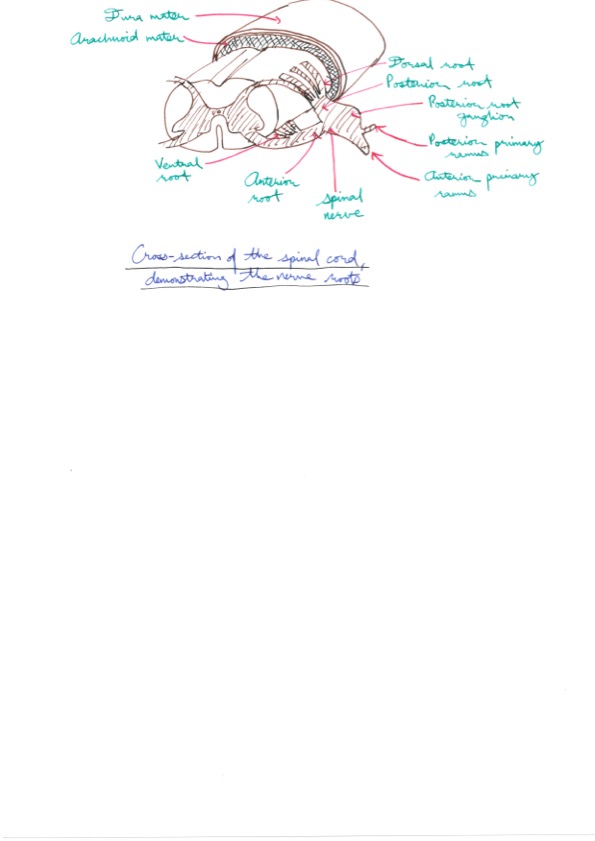 Dura mater
Arachnoid mater
Dorsal root
Posterior root
Posterior root
ganglion
Posterior primary
ramus
Anterior primary
ramus
Ventral
root
Anterior
root
spinal
nerve
Cross-section of the spinal cord,
demonstrating the nerve roots